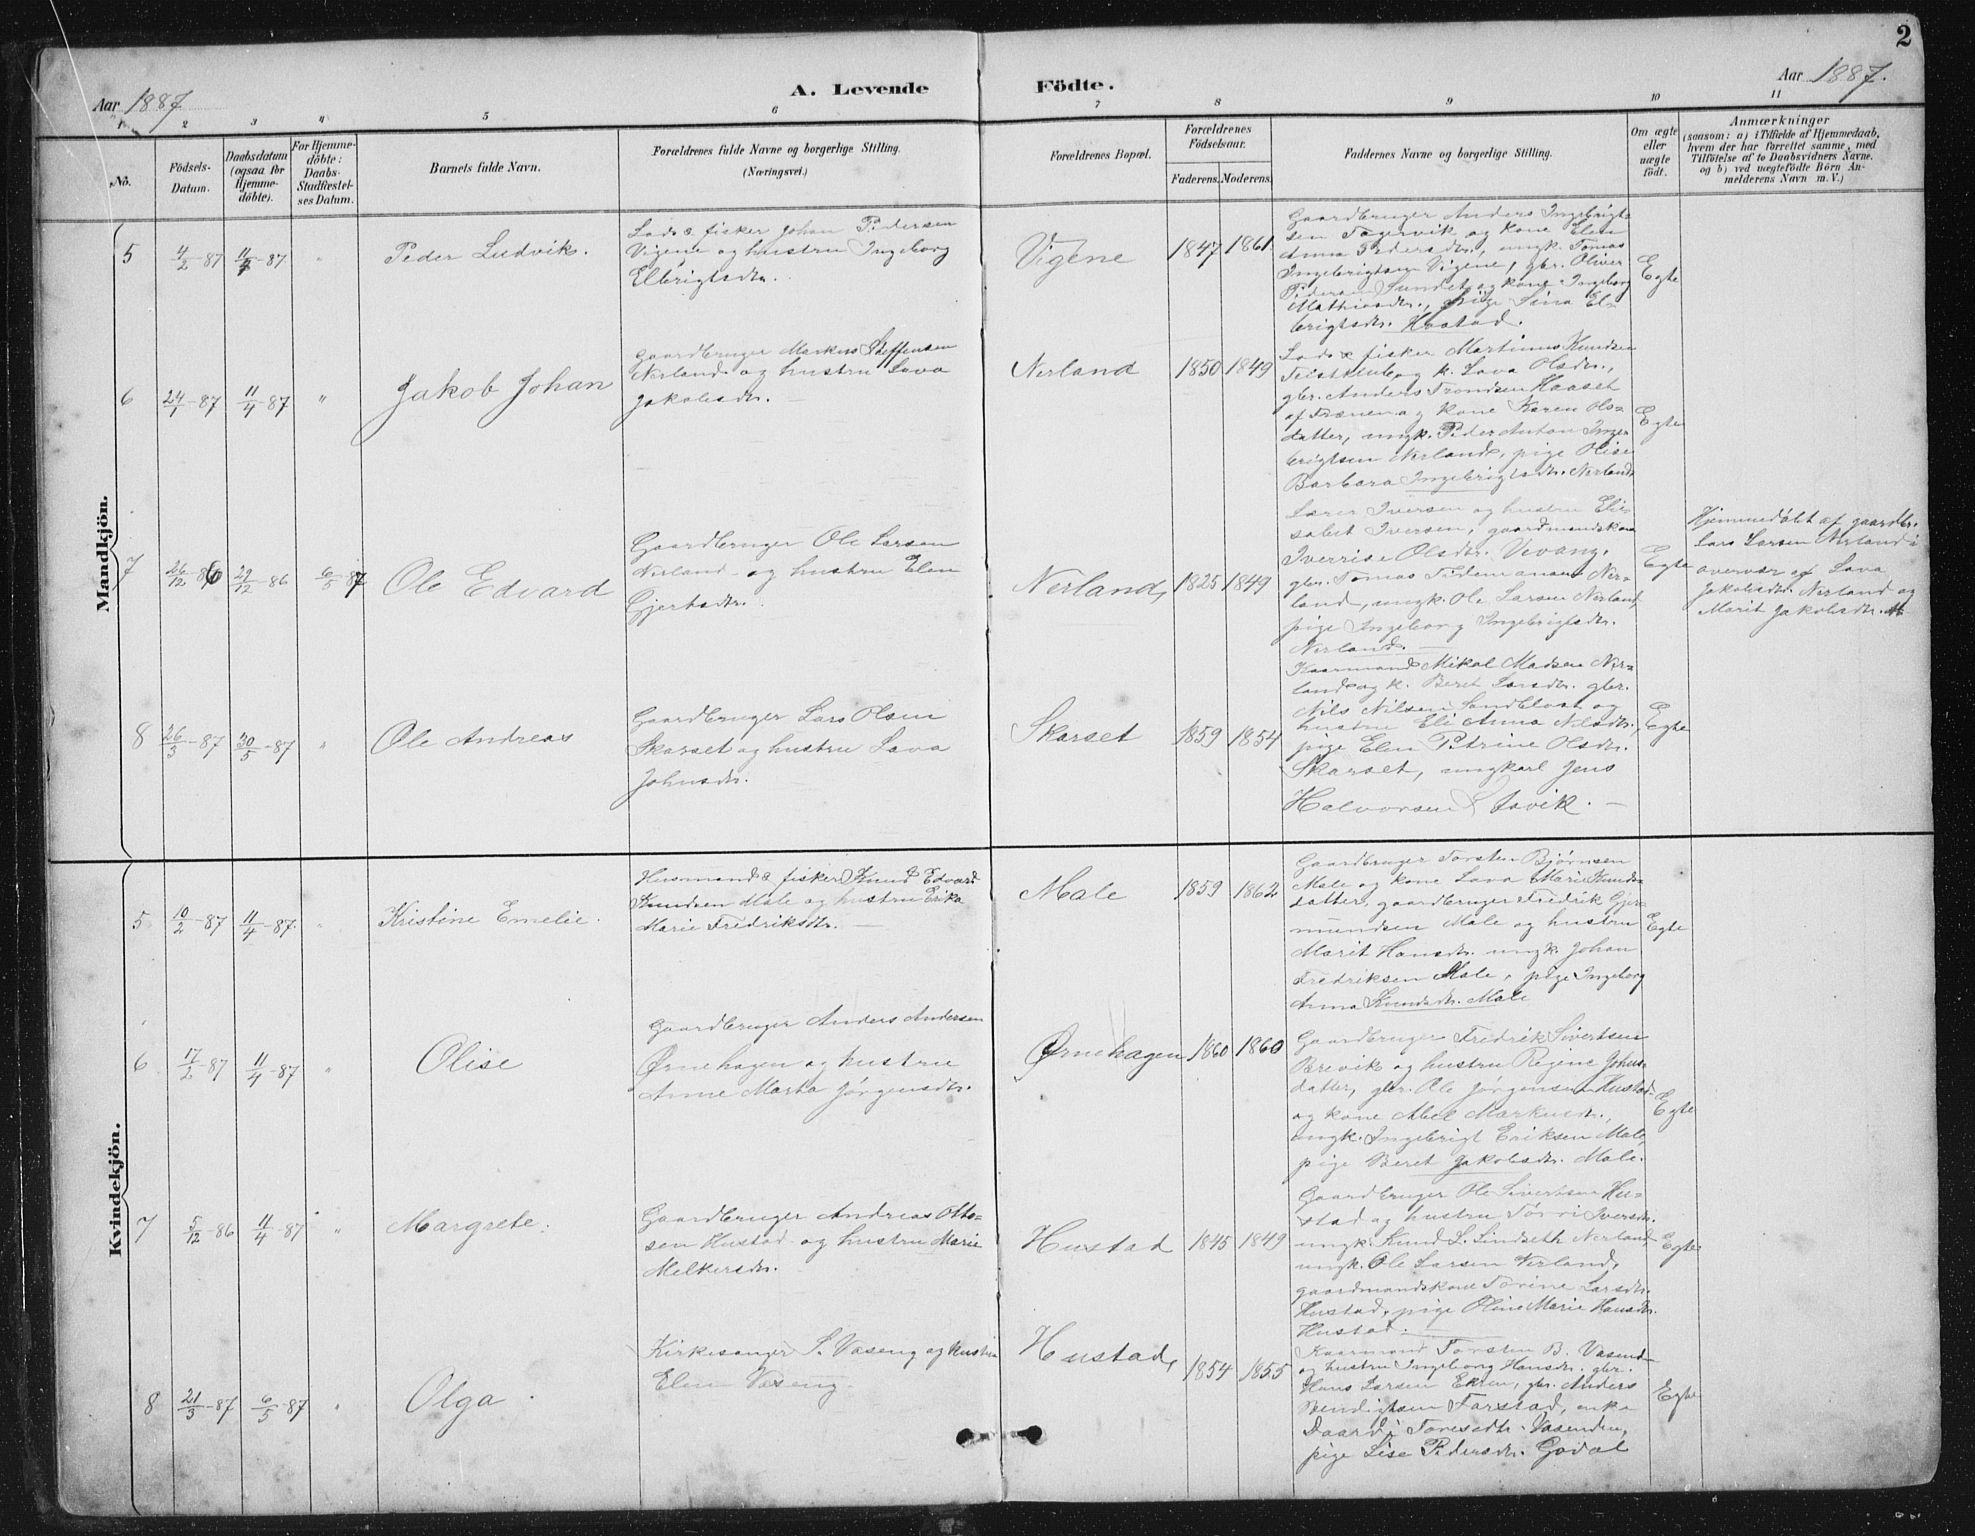 2
Aar 1887
A. Levende Födte.
Aar 1887.
1 2 3 4 5 6 7 8 9 10 11
No.
Födsels-Datum.
Daabsdatum (ogsaa for Hjemmedöbte).
For Hjemmedöbte: Daabs-Stadfæstelses Datum.
Barnets fulde Navn.
Forældrenes fulde Navne og borgerlige Stilling.
(Næringsvei.)
Forældrenes Bopæl.
Forældrenes Födselsaar.
Faderens. Moderens.
Faddernes Navne og borgerlige Stilling.
Om ægte eller uægte födt.
Anmærkninger
(saasom: a) i Tilfælde af Hjemmedaab,
hvem der har forrettet samme, med
Tilföielse af to Daabsvidners Navne.
og b) ved uægtefödte Börn An-
melderens Navn m. V.)
Mandkjön.
5 4/2-87 11/4-87 " Peder Ludvik.
Lods & fisker Johan Pedersen
Vigene og hustru Ingeborg
Elbrigtsdtr.
Vigene 1847 1861
Gaardbruger Anders Ingebrigt-
sen Fagervik og kone Elen
Anna Pedersdtr., ungk. Tomas
Ingebrigtsen Vigene, gbr. Oliver
Pedersen Sundet og kone Ingeborg
Mathiasdtr., pige Sina El-
brigtsdtr. Hustad.
Egte
6 24/1-87 11/4-87 " Jakob Johan
Gaardbruger Markus Steffensen
Nerland og hustru Lava
Jakobsdtr.
Nerland 1850 1849
Lods & fisker Martinus Knudsen
og k. Lava Olsdtr.,
gbr. Anders Trondsen Haaset
af Frænen og kone Karen Ols-
datter, ungk. Peder Anton Inge-
brigtsen Nerland, pige Olise
Barbara Ingebrigtsdtr. Nerland
Egte
7 26/12-86 29/12-86 6/5-87 Ole Edvard
Gaardbruger Ole Larsen
Nerland og hustru Elen
Gjertsdtr.
Nerland, 1825 1849
Lærer Iversen og hustru Eli-
sabet Iversen, gaardmandskone
Iverrise Olsdtr. Vevang,
gbr. Tomas Tidemansen Ner-
land, ungk. Ole Larsen Nerland,
pige Ingeborg Ingebrigtsdtr.
Nerland.
Egte
Hjemmedøbt af gaardbr.
Lars Larsen Nerland i
overvær af Lava
Jakobsdtr. Nerland og
Marit Jakobsdtr.
8 26/3-87 30/5-87 " Ole Andreas
Gaardbruger Lars Olsen
Skarset og hustru Lava
Johnsdtr.
Skarset 1859 1854
Kaarmand Mikal Madsen Ner-
land og k. Beret Larsdtr. gbr.
Nils Nilsen Sandblaast og
hustru Eli Anna Nilsdtr.,
pige Elen Petrine Olsdtr.
Skarset, ungkarl Jens
Halvorsen Stavik.
Egte
Kvindekjön.
5 10/2-87 11/4-87 " Kristine Emelie.
Husmand & fisker Knud Edvard
Knudsen Male og hustru Erika
Marie Fredriksdtr.
Male 1859 1862
Gaardbruger Torsten Bjørnsen
Male og kone Lava Marie Knuds-
datter, gaardbruger Fredrik Gjer-
mundsen Male og hustru
Marit Hansdtr. ungk. Johan
Fredriksen Male, pige Ingeborg
Anna Knudsdtr. Male
Egte
6 17/2-87 11/4-87 " Olise
Gaardbruger Anders Andersen
Ørnehagen og hustru
Anne Marta Jørgensdtr.
Ørnehagen 1860 1860
Gaardbruger Fredrik Sivertsen
Brevik og hustru Regine Johns-
datter, gbr. Ole Jørgensen Hustad
og kone Abel Markusdtr.,
ungk. Ingebrigt Eriksen Male,
pige Beret Jakobsdtr. Male.
Egte
7 5/12-86 11/4-87 " Margrete.
Gaardbruger Andreas Otto-
sen Hustad og hustru Marie
Melkersdtr.
Hustad 1845 1849
Gaardbruger Ole Sivertsen Hu-
stad og hustru Iversdtr.
ungk. Knud L. Lindseth Nerland,
ungk. Ole Larsen Nerland,
gaardmandskone Larsdtr.
Hustad, pige Oline Marie Hansdtr.
Hustad.
Egte
8 21/3-87 6/5-87 " Olga.
Kirkesanger S. Vaseng og hustru
Elen Vaseng
Hustad, 1854 1855
Kaarmand Torsten B. Vasend-
og hustru Ingeborg Hansdtr. gbr.
Hans Larsen Ekren, gbr. Anders
Bendigtsen Farstad, enke
Toresdtr. Vasenden,
pige Lise Pedersdtr. Godal
Egte